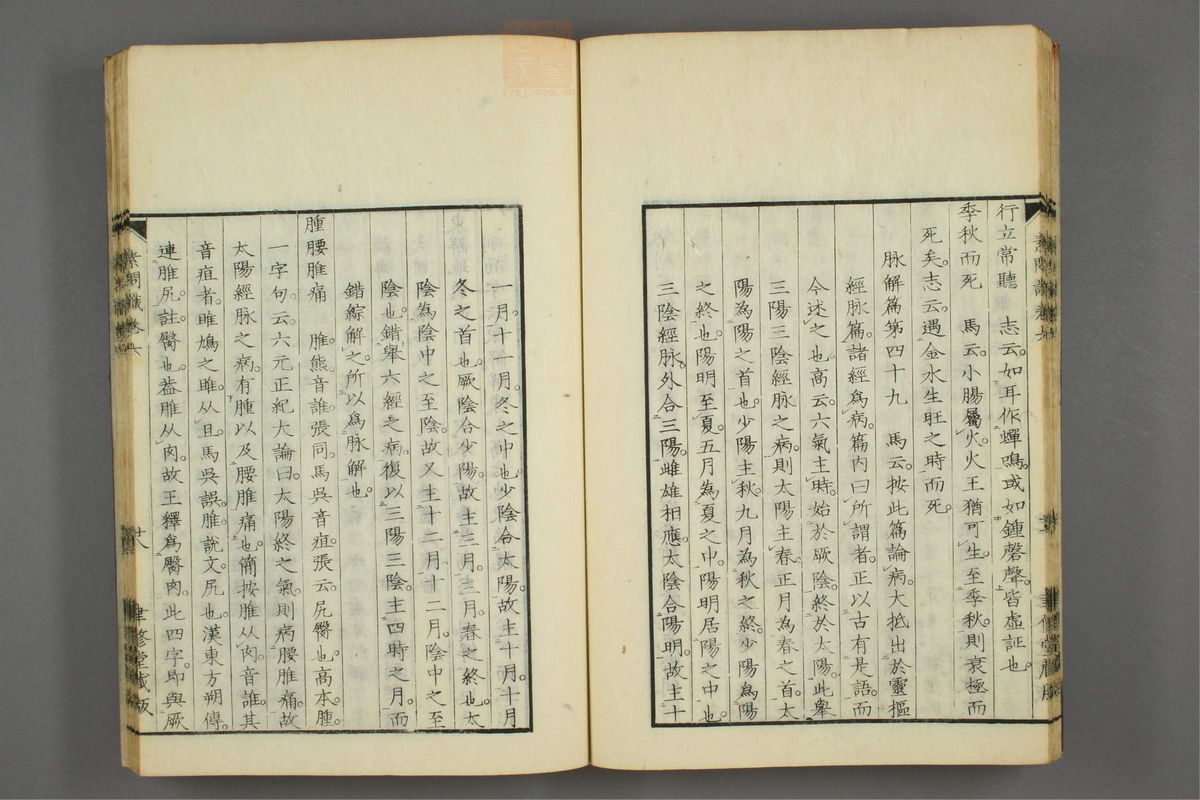 行立常聽　志云。如耳作蟬鳴。或如鍾磬聲。皆虛証也。
季秋而死　馬云。小腸屬火。火王猶可生。至季秋。則衰極而
死矣。志云。遇金水生旺之時而死。
脉解篇第四十九　馬云。按此篇論病。大抵出於靈樞
經脉篇。諸經爲病。篇內曰所謂者。正以古有是語。而
今述之也。高云。六氣主時。始於厥陰。終於太陽。此舉
三陽三陰經脉之病。則太陽主春。正月為春之首。太
陽為陽之首也。少陽主秋。九月為秋之終。少陽為陽
之終也。陽明至夏。五月為夏之中。陽明居陽之中也。
三陰經脉。外合三陽。雌雄相應。太陰合陽明。故主十
一月。十一月。冬之中也。少陰合太陽。故主十月。十月
冬之首也。厥陰合少陽。故主三月。三月春之終也。太
陰為陰中之至陰。故又主十二月。十二月。陰中之至
陰也。錯舉六經之病。復以三陽三陰。主四時之月。而
錯綜解之。所以爲脉解也。
腫腰脽痛　脽。熊音誰。張同。馬吳音疽。張云。尻臀也。高本。腫。
一字句。云。六元正紀大論曰。太陽終之氣。則病腰脽痛。故
太陽經脉之病。有腫以及腰脽痛也。簡按脽从肉音誰。其
音疽者。雎鳩之雎。从且。馬吳誤。脽說文。尻也。漢東方朔傳。
連脽尻。註。臀也。蓋脽从肉。故王釋爲臀肉。此四字。即與厥
素問識卷六
廿八
聿修堂藏版